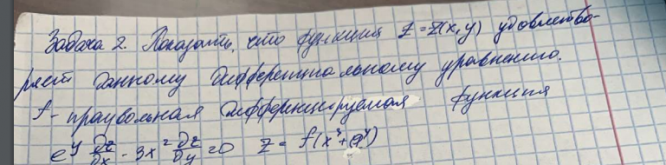 Задача 2. Показать, что функция z=z(x,y) удовлетво-
ряет данному дифференциальному уравнению.
f - произвольная дифференцируемая функция
e^y ∂z/∂x - 3x² ∂z/∂y = 0   z = f(x³+e^y)